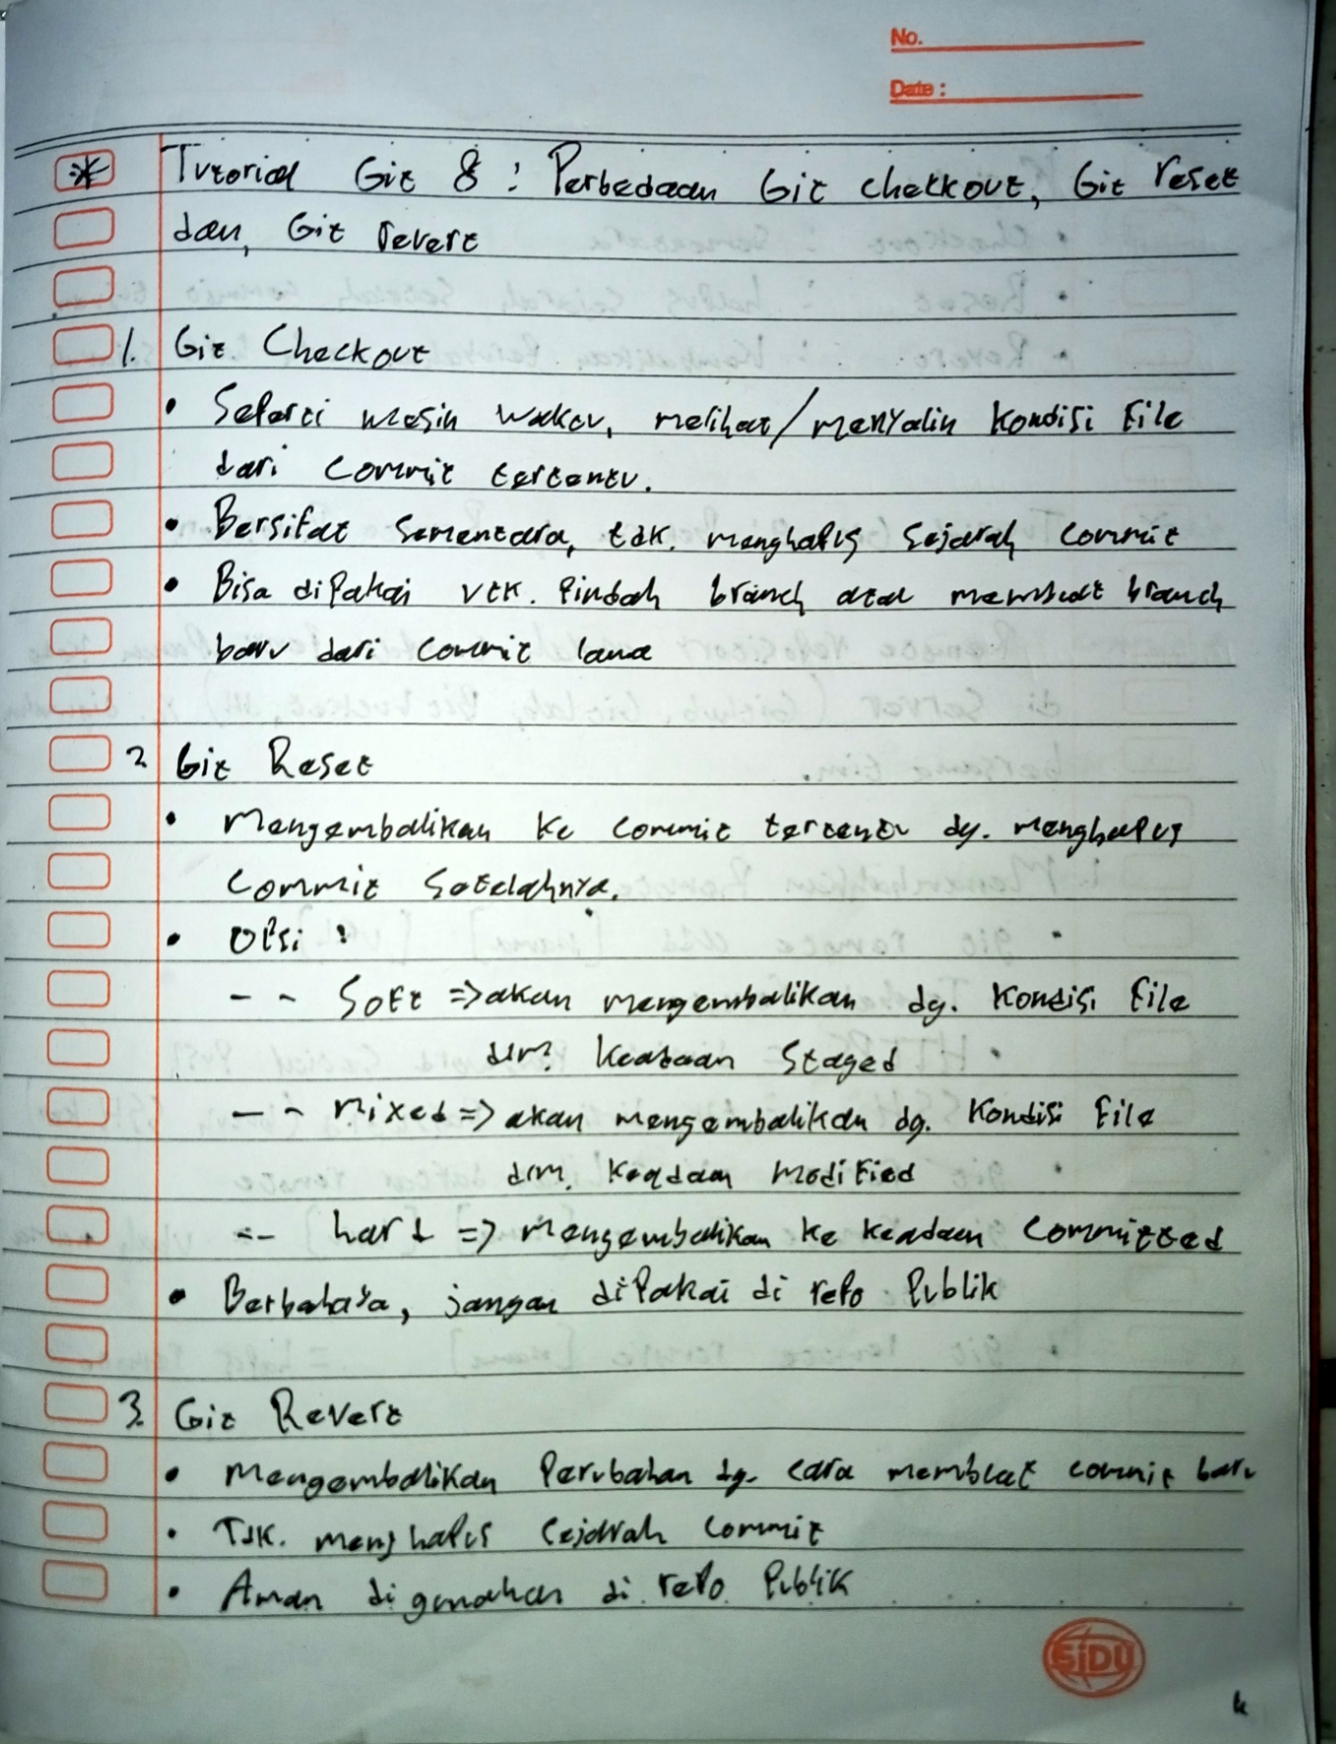 No.
Date :
* Tutorial Git 8 : Perbedaan Git checkout, Git reset
dan, Git revert
1. Git Checkout
• Seperti mesin waktu, melihat/menyalin kondisi file
dari commit tertentu.
• Bersifat sementara, tdk. menghapus sejarah commit
• Bisa dipakai utk. pindah branch atau membuat branch
baru dari commit lama
2. Git Reset
• Mengembalikan ke commit tertentu dg. menghapus
commit setelahnya.
• Opsi :
-- Soft => akan mengembalikan dg. kondisi file
dlm. keadaan staged
-- mixed => akan mengembalikan dg. kondisi file
dlm. keadaan modified
-- hard => mengembalikan ke keadaan committed
• Berbahaya, jangan dipakai di repo publik
3. Git Revert
• Mengembalikan perubahan dg. cara membuat commit baru
• Tdk. menghapus sejarah commit
• Aman digunakan di repo publik
SIDU